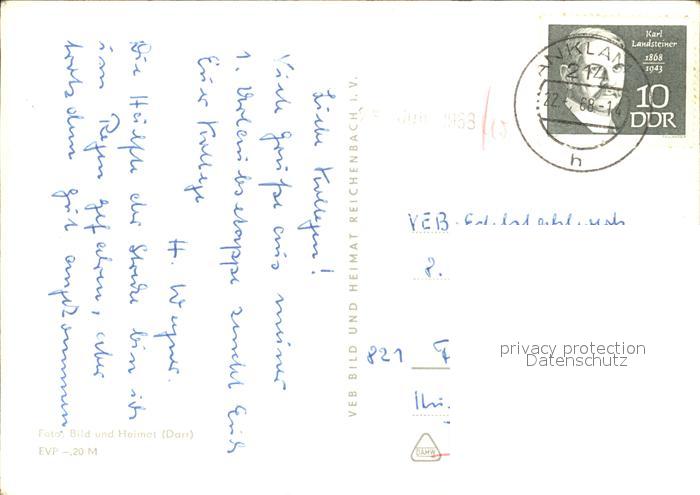 Liebe Kollegen!
Viele Grüße aus meiner
1. Urlaubsetappe sendet Euch
Euer Kollege
H. Wagner.
Die Hälfte der Strecke bin ich
im Regen gefahren, aber
trotzdem gut angekommen.
Foto: Bild und Heimat (Darr)
EVP –,20 M
VEB BILD UND HEIMAT REICHENBACH I. V.
Karl
Landsteiner
1868
1943
10
DDR
ANKLAM
22. 68-14
h
1968
VEB
8.
821
privacy protection
Datenschutz
DAMW